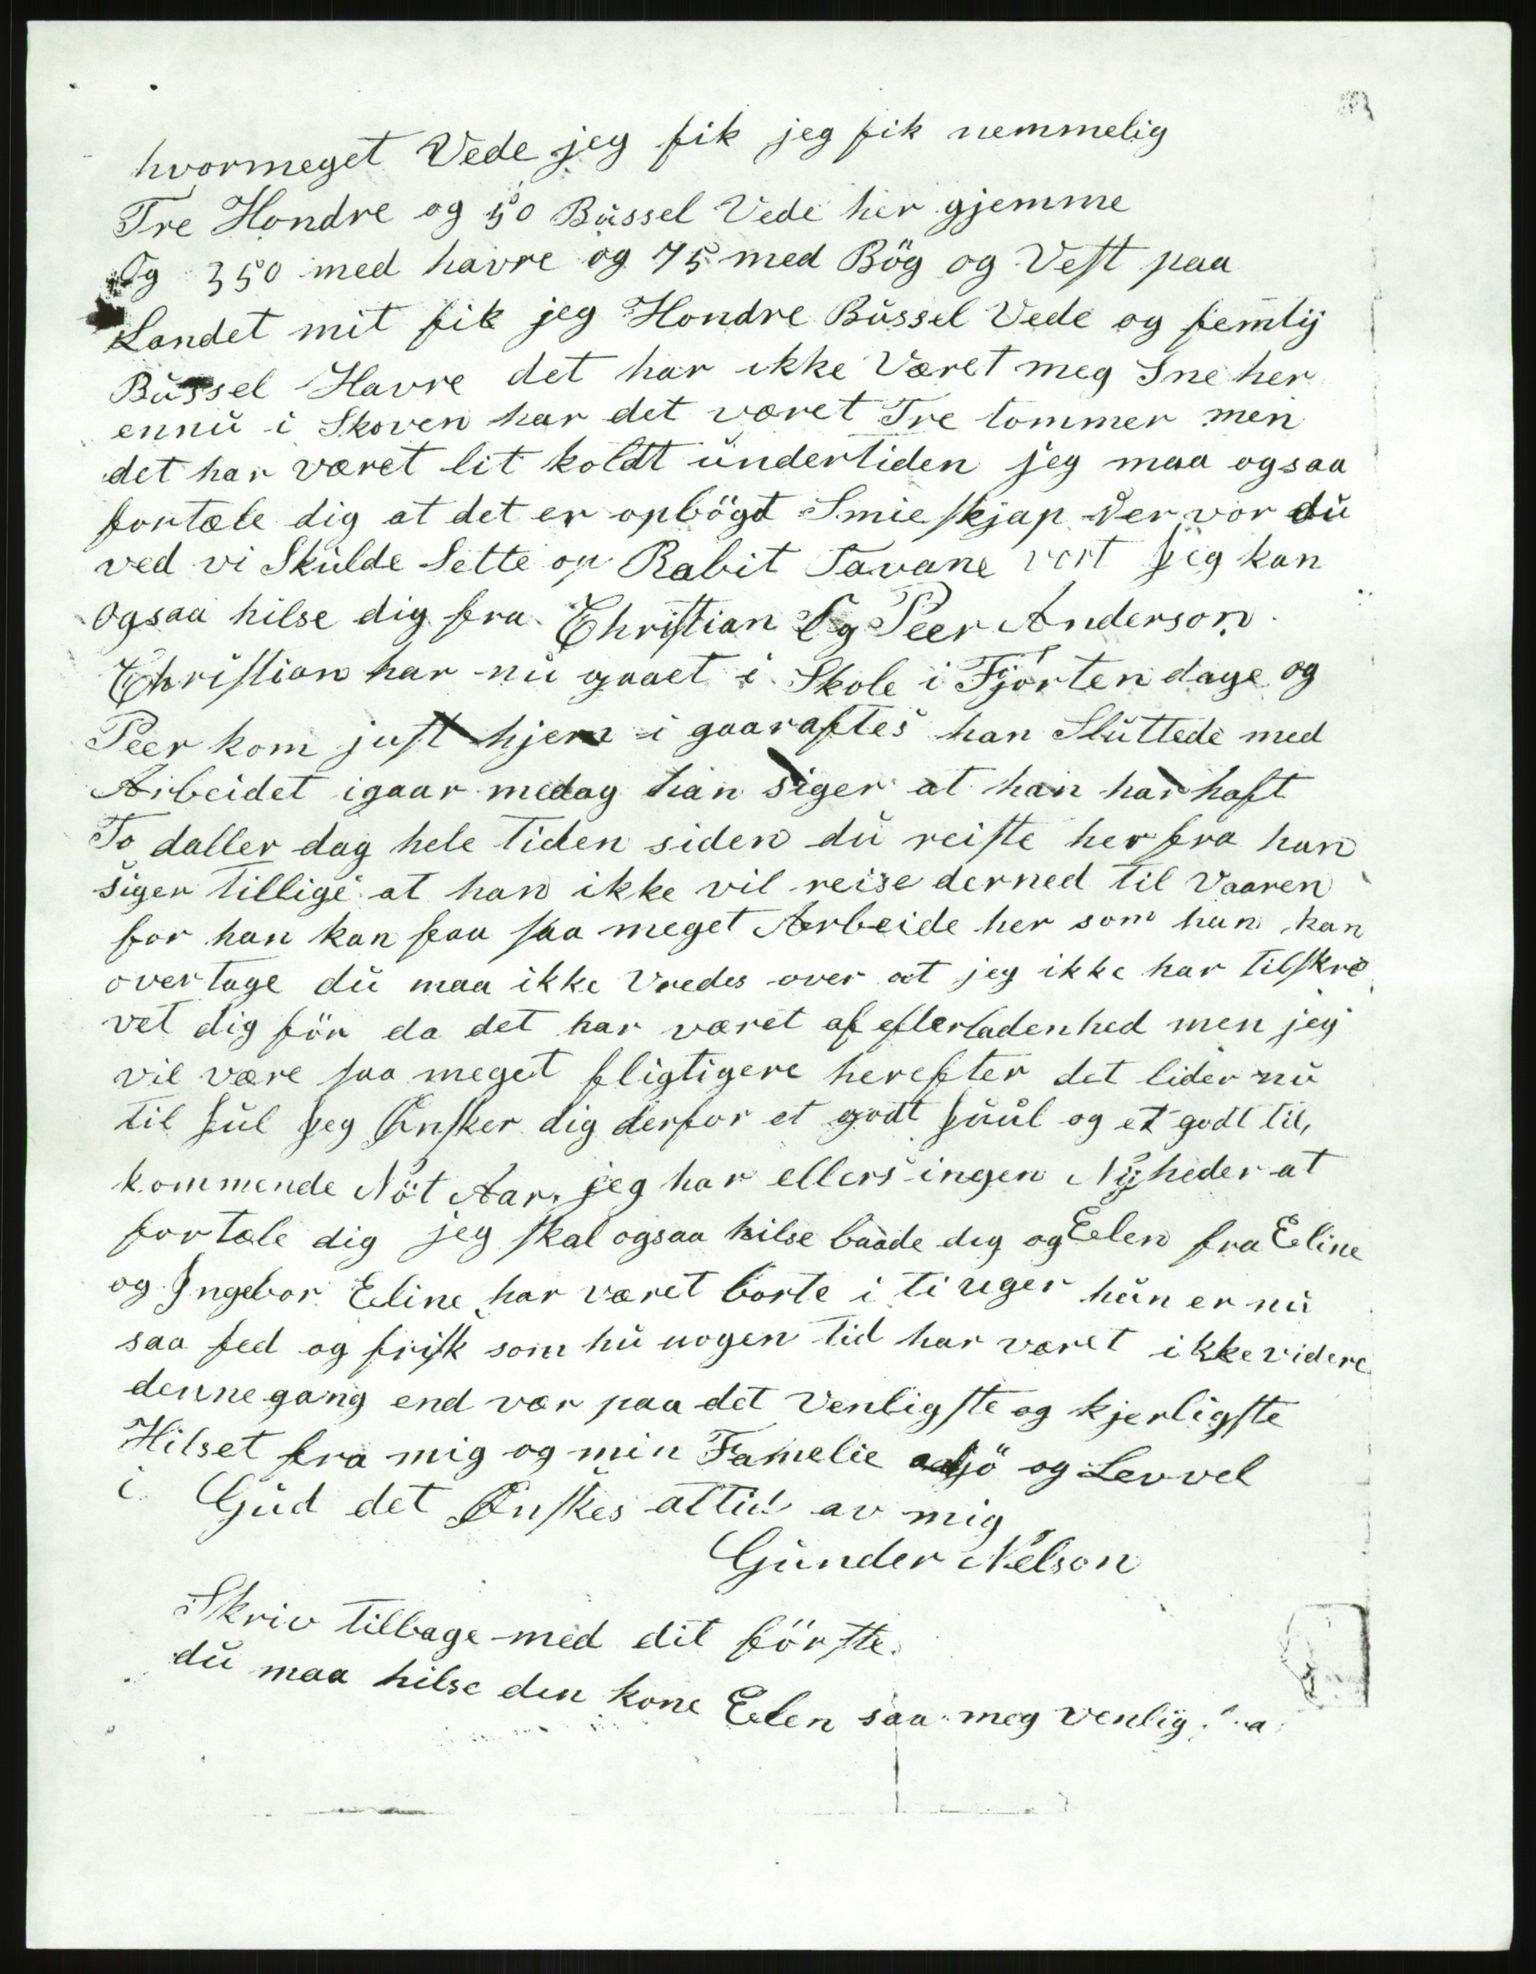 hvormeget Vede jeg fik jeg fik nemmelig
Tre Hondre og 50 Büssel Vede her gjemme
Og 350 med havre og 75 med Bög og Vest paa
Landet mit fik jeg Hondre Büssel Vede og femtij
Büssel Havre det har ikke Været meg Sne her
ennü i Skoven har det været Tre tommer men
det har været lit koldt ündertiden jeg maa ogsaa
fortæle dig at det er opbögt Smieskjap der vor dü
ved vi Skülde Sette op Rabit Tavane vort Jeg kan
ogsaa hilse dig fra Christian Og Peer Anderson
Christian har nü gaaet i Skole i Fjorten dage og
Peer kom just hjem i gaaraftes han Slüttede med
Arbeidet igaar medag han siger at han har haft
To daller dag hele tiden siden dü reiste herfra han
siger tillige at han ikke vil reise derned til Vaaren
for han kan faa saa meget Arbeide her som han kan
overtage dü maa ikke Vredes over at jeg ikke har tilskre
vet dig för da det har været af efterladenhed men jeg
vil være saa meget fligtigere herefter det lider nü
til Jül Jeg Ønsker dig derfor et godt Jüül og et godt til,
kommende Nöt Aar. jeg har ellers ingen Nÿheder at
fortæle dig jeg skal ogsaa hilse baade dig og Eelen fra Eeline
og Ingebor Eeline har været borte i ti uger hün er nü
saa fed og frisk som hü nogen tid har været ikke videre
denne gang end vær paa det Venligste og kjerligste
Hilset fra mig og min Famelie adjö og Levvel
i Güd det Ønskes altid av mig
Günder Nelson
Skriv tilbage med dit förste.
dü maa hilse den kone Eelen saa meg venlig